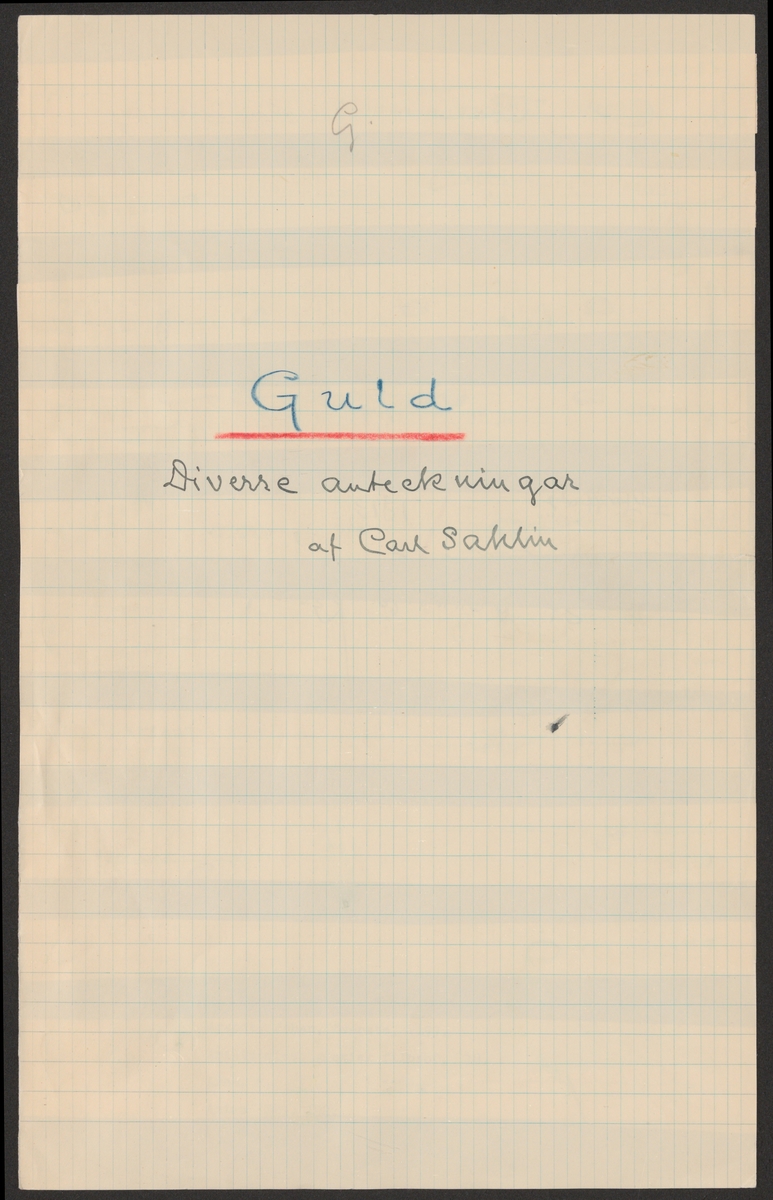 G.
Guld
Diverse anteckningar
af Carl Sahlin